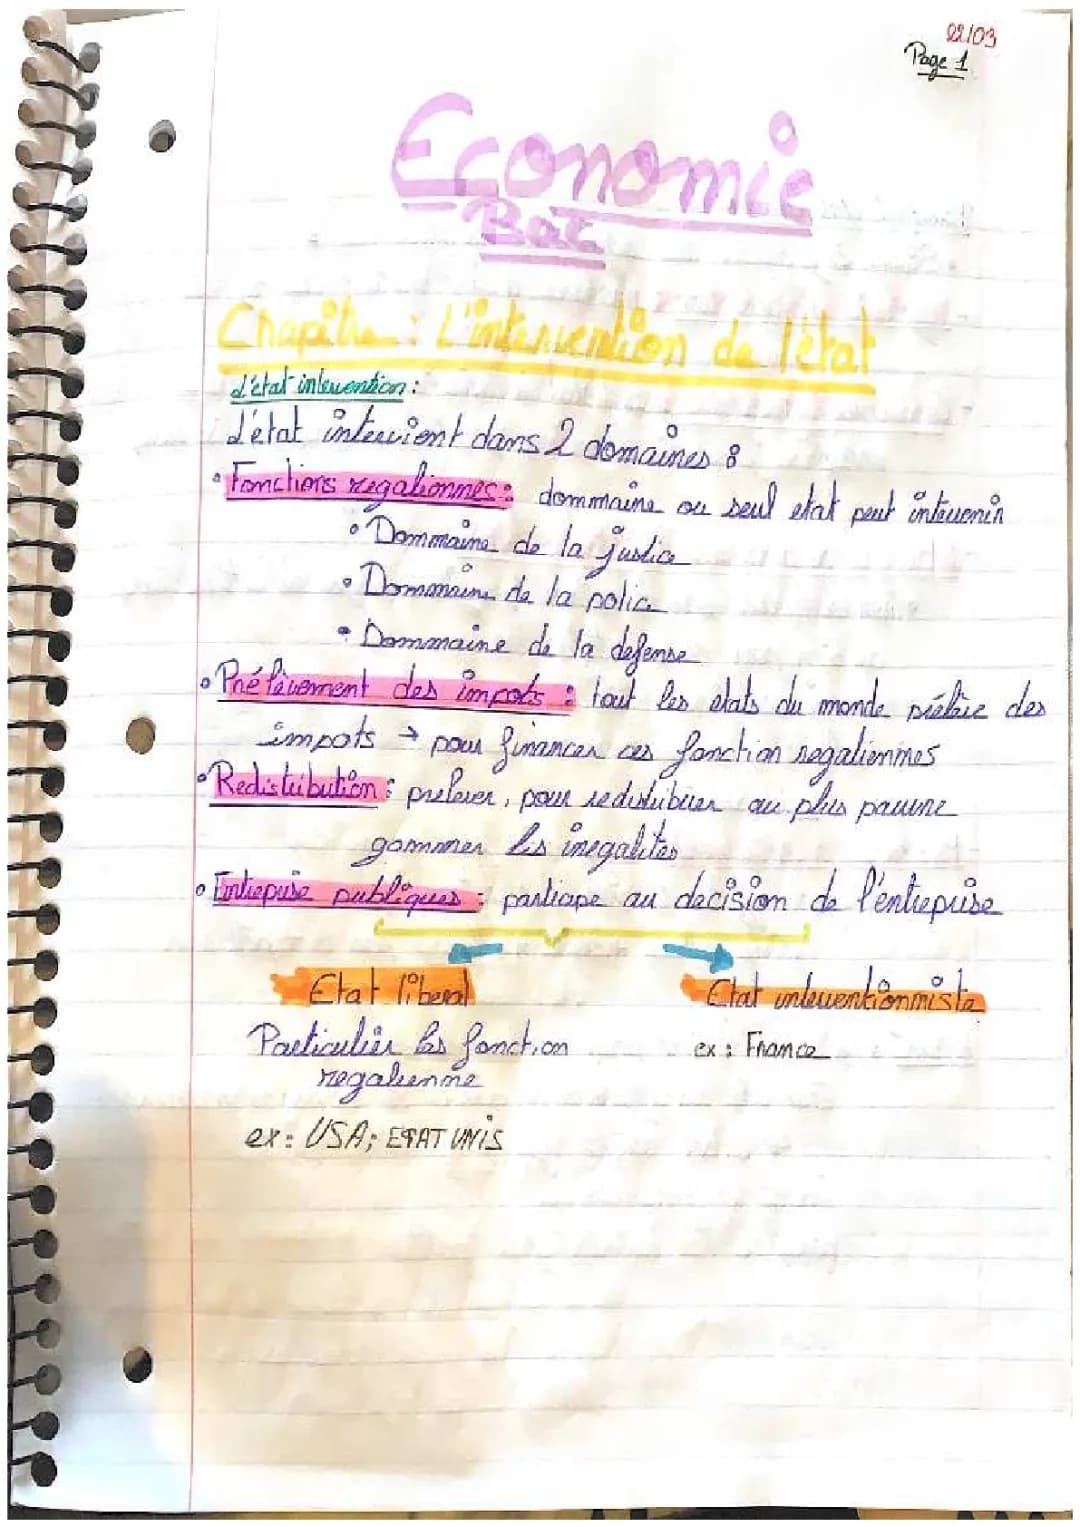 22/03
Page 1
Economie
Bac
Chapitre : L'intervention de l'état
L'état intervention :
L'état intervient dans 2 domaines :
• Fonctions regaliennes : dommaine ou seul etat peut intervenir
• Dommaine de la justice
• Dommaine de la police
• Dommaine de la defense
• Prélèvement des impots : tout les etats du monde prélève des
impots → pour financer ces fonction regaliennes
• Redistribution : prelever, pour redistribuer au plus pauvre
gommer les inegalites
• Entreprise publiques : participe au decision de l'entreprise
Etat liberal
Etat interventionniste
Particulier les fonction
regalienne
ex : France
ex : USA; ETAT UNIS